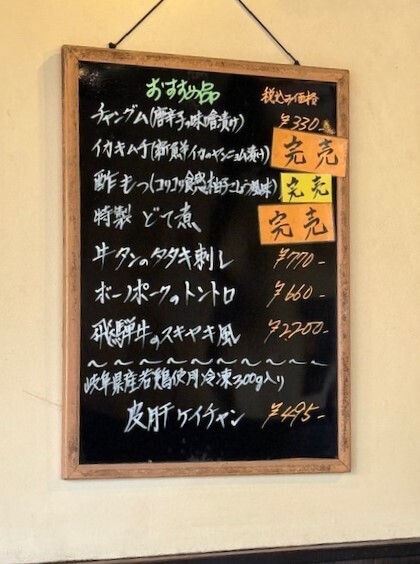 おすすめ品 税込み価格
チャングム(唐辛子の味噌漬け) ¥330-
イカキムチ(新鮮イカのヤンニョム漬け) 完売
酢もつ(コリコリ食感柚子こしょう風味) 完売
特製 どて煮 完売
牛タンのタタキ刺し ¥770-
ボーノポークのトントロ ¥660-
飛騨牛のスキヤキ風 ¥2,200-
〜〜〜〜〜〜〜〜〜〜〜
岐阜県産若鶏使用冷凍300g入り
皮肝ケイチャン ¥495-